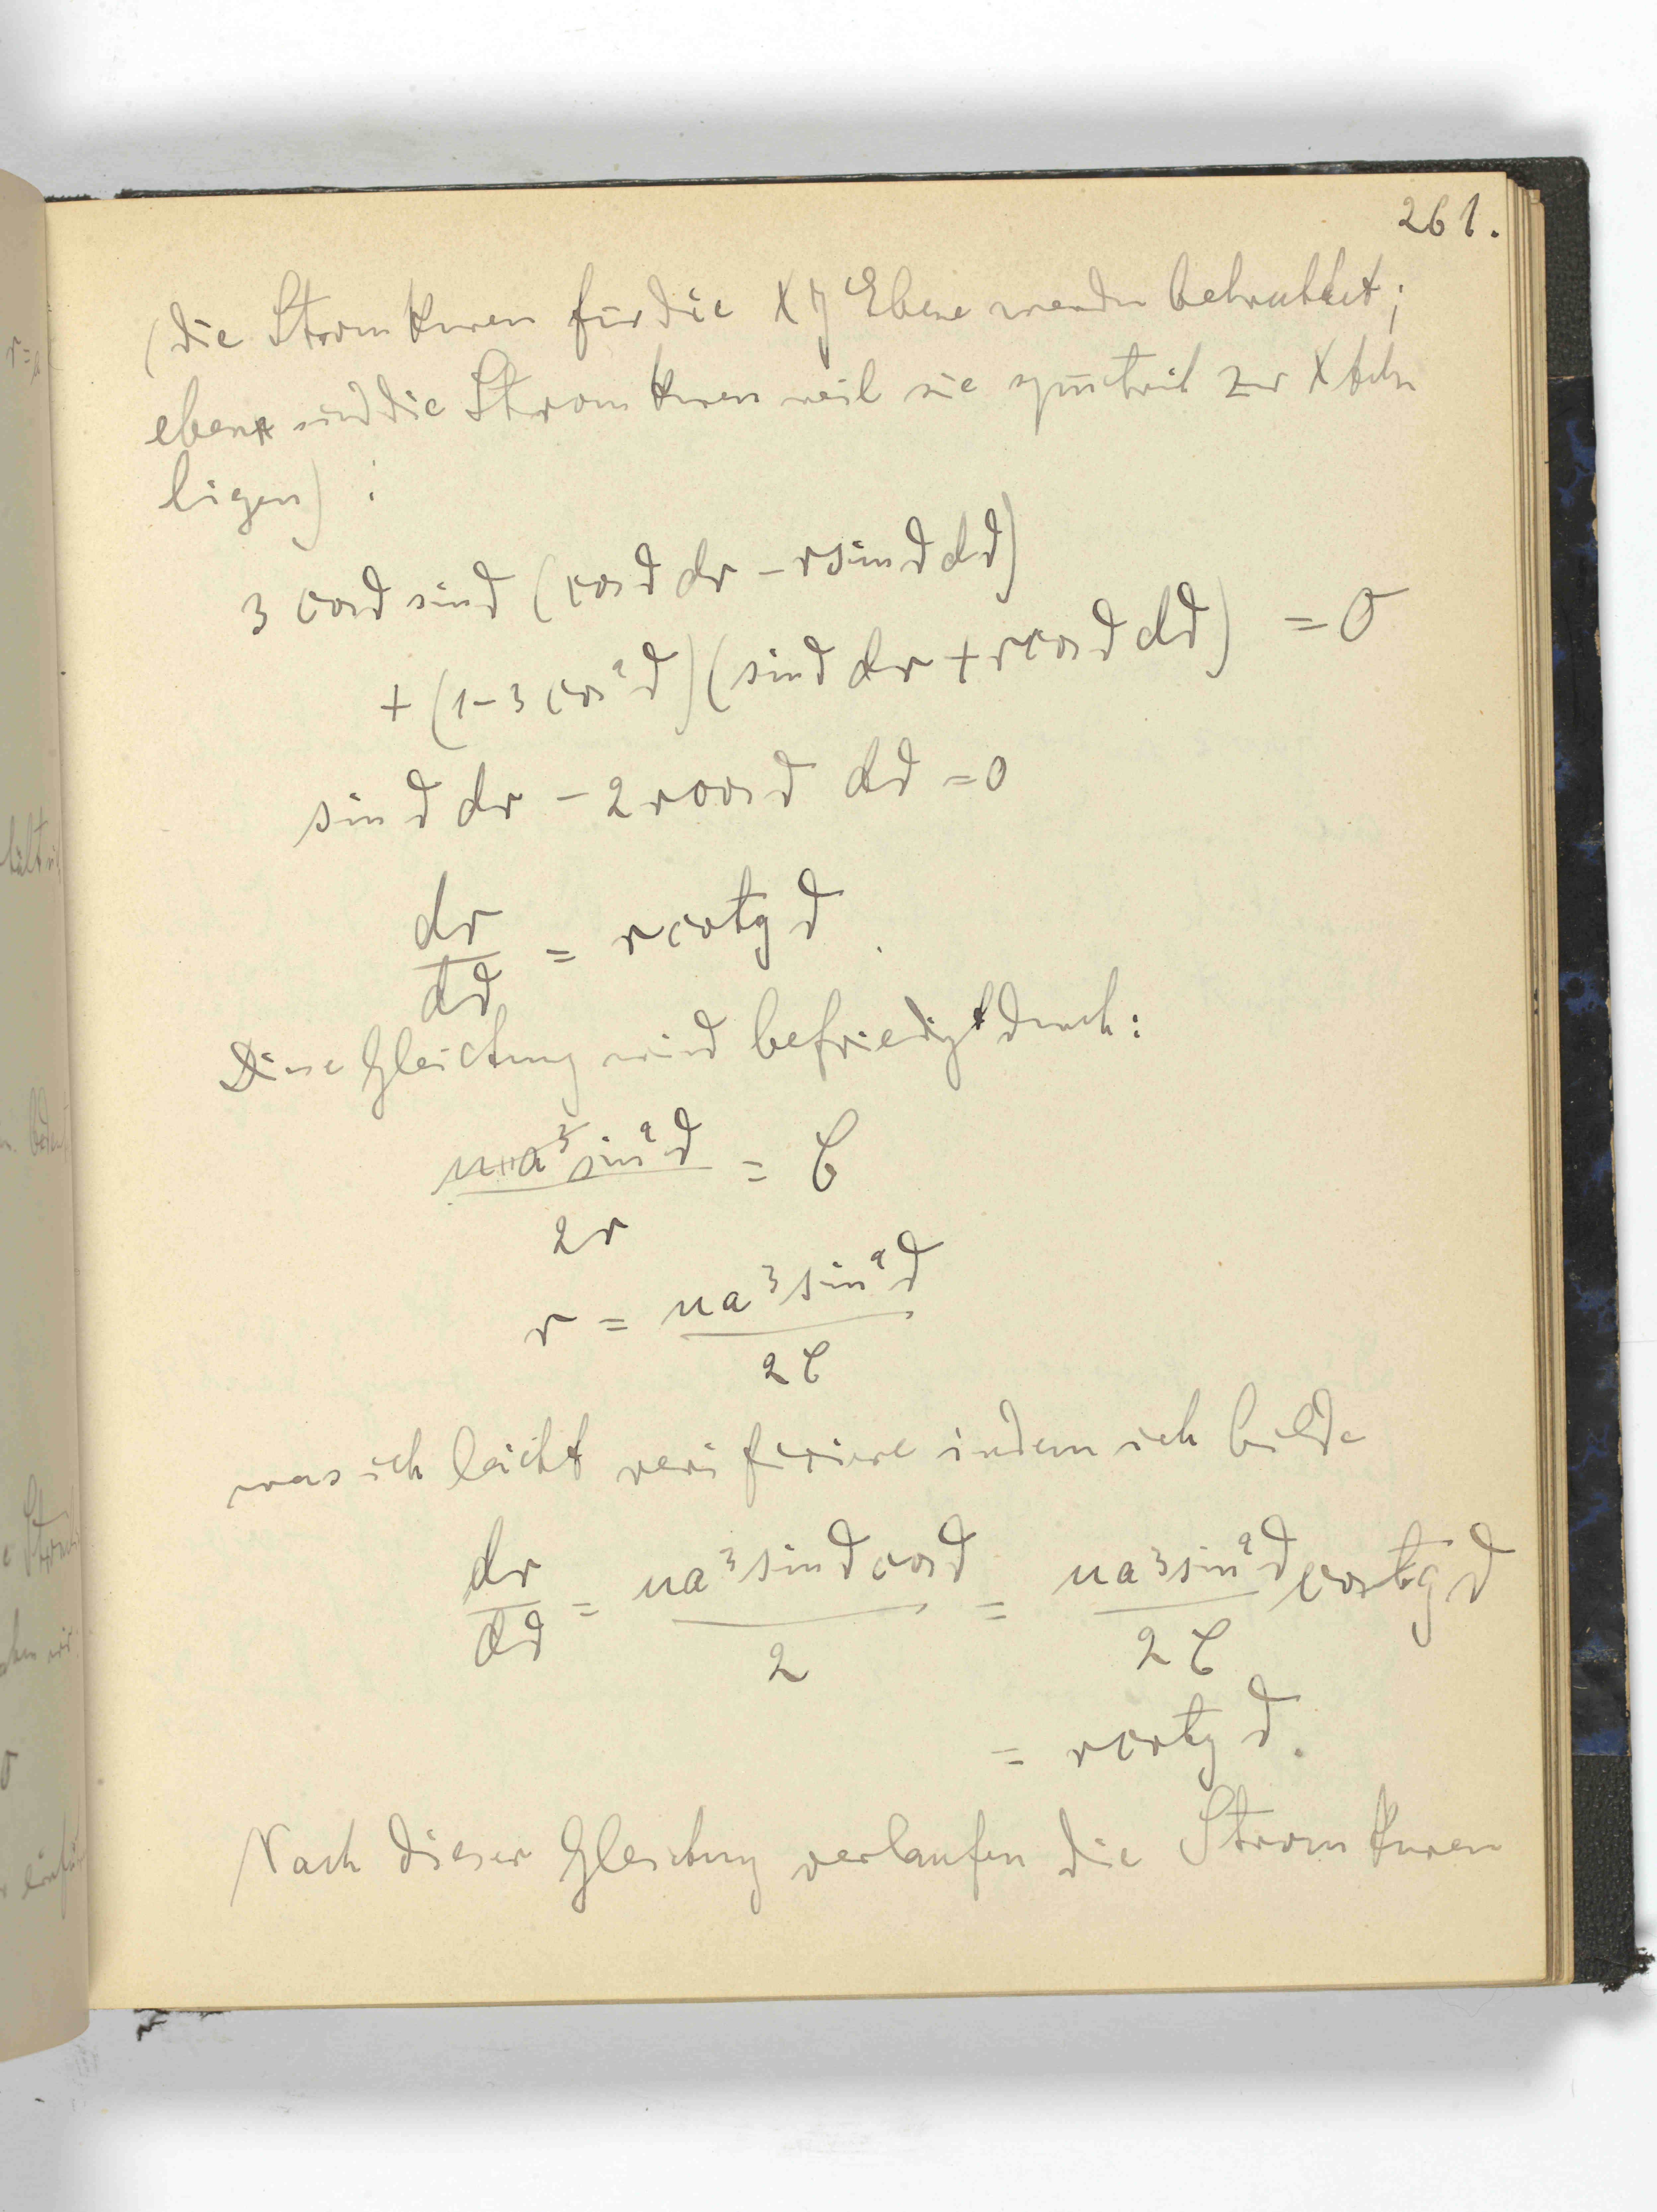 261.
(die Stromkurven für die XY Ebene werden betrachtet;
eben sind die Stromkurven weil sie symetrisch zur X Achse
liegen) :
3 cosϑ sinϑ (cosϑ dr − r sinϑ dϑ)
+ (1−3 cos²ϑ)(sinϑ dr + r cosϑ dϑ) = 0
sinϑ dr − 2r cosϑ dϑ = 0
dr/dϑ = r cotg ϑ
Diese Gleichung wird befriedigt durch:
ua³sin²ϑ / 2r = C
r = ua³sin²ϑ / 2C
was ich leicht verificiere indem ich bilde
dr/dϑ = ua³sinϑ cosϑ / 2 = ua³sin²ϑ / 2C cotg ϑ
= r cotg ϑ.
Nach dieser Gleichung verlaufen die Stromkurven